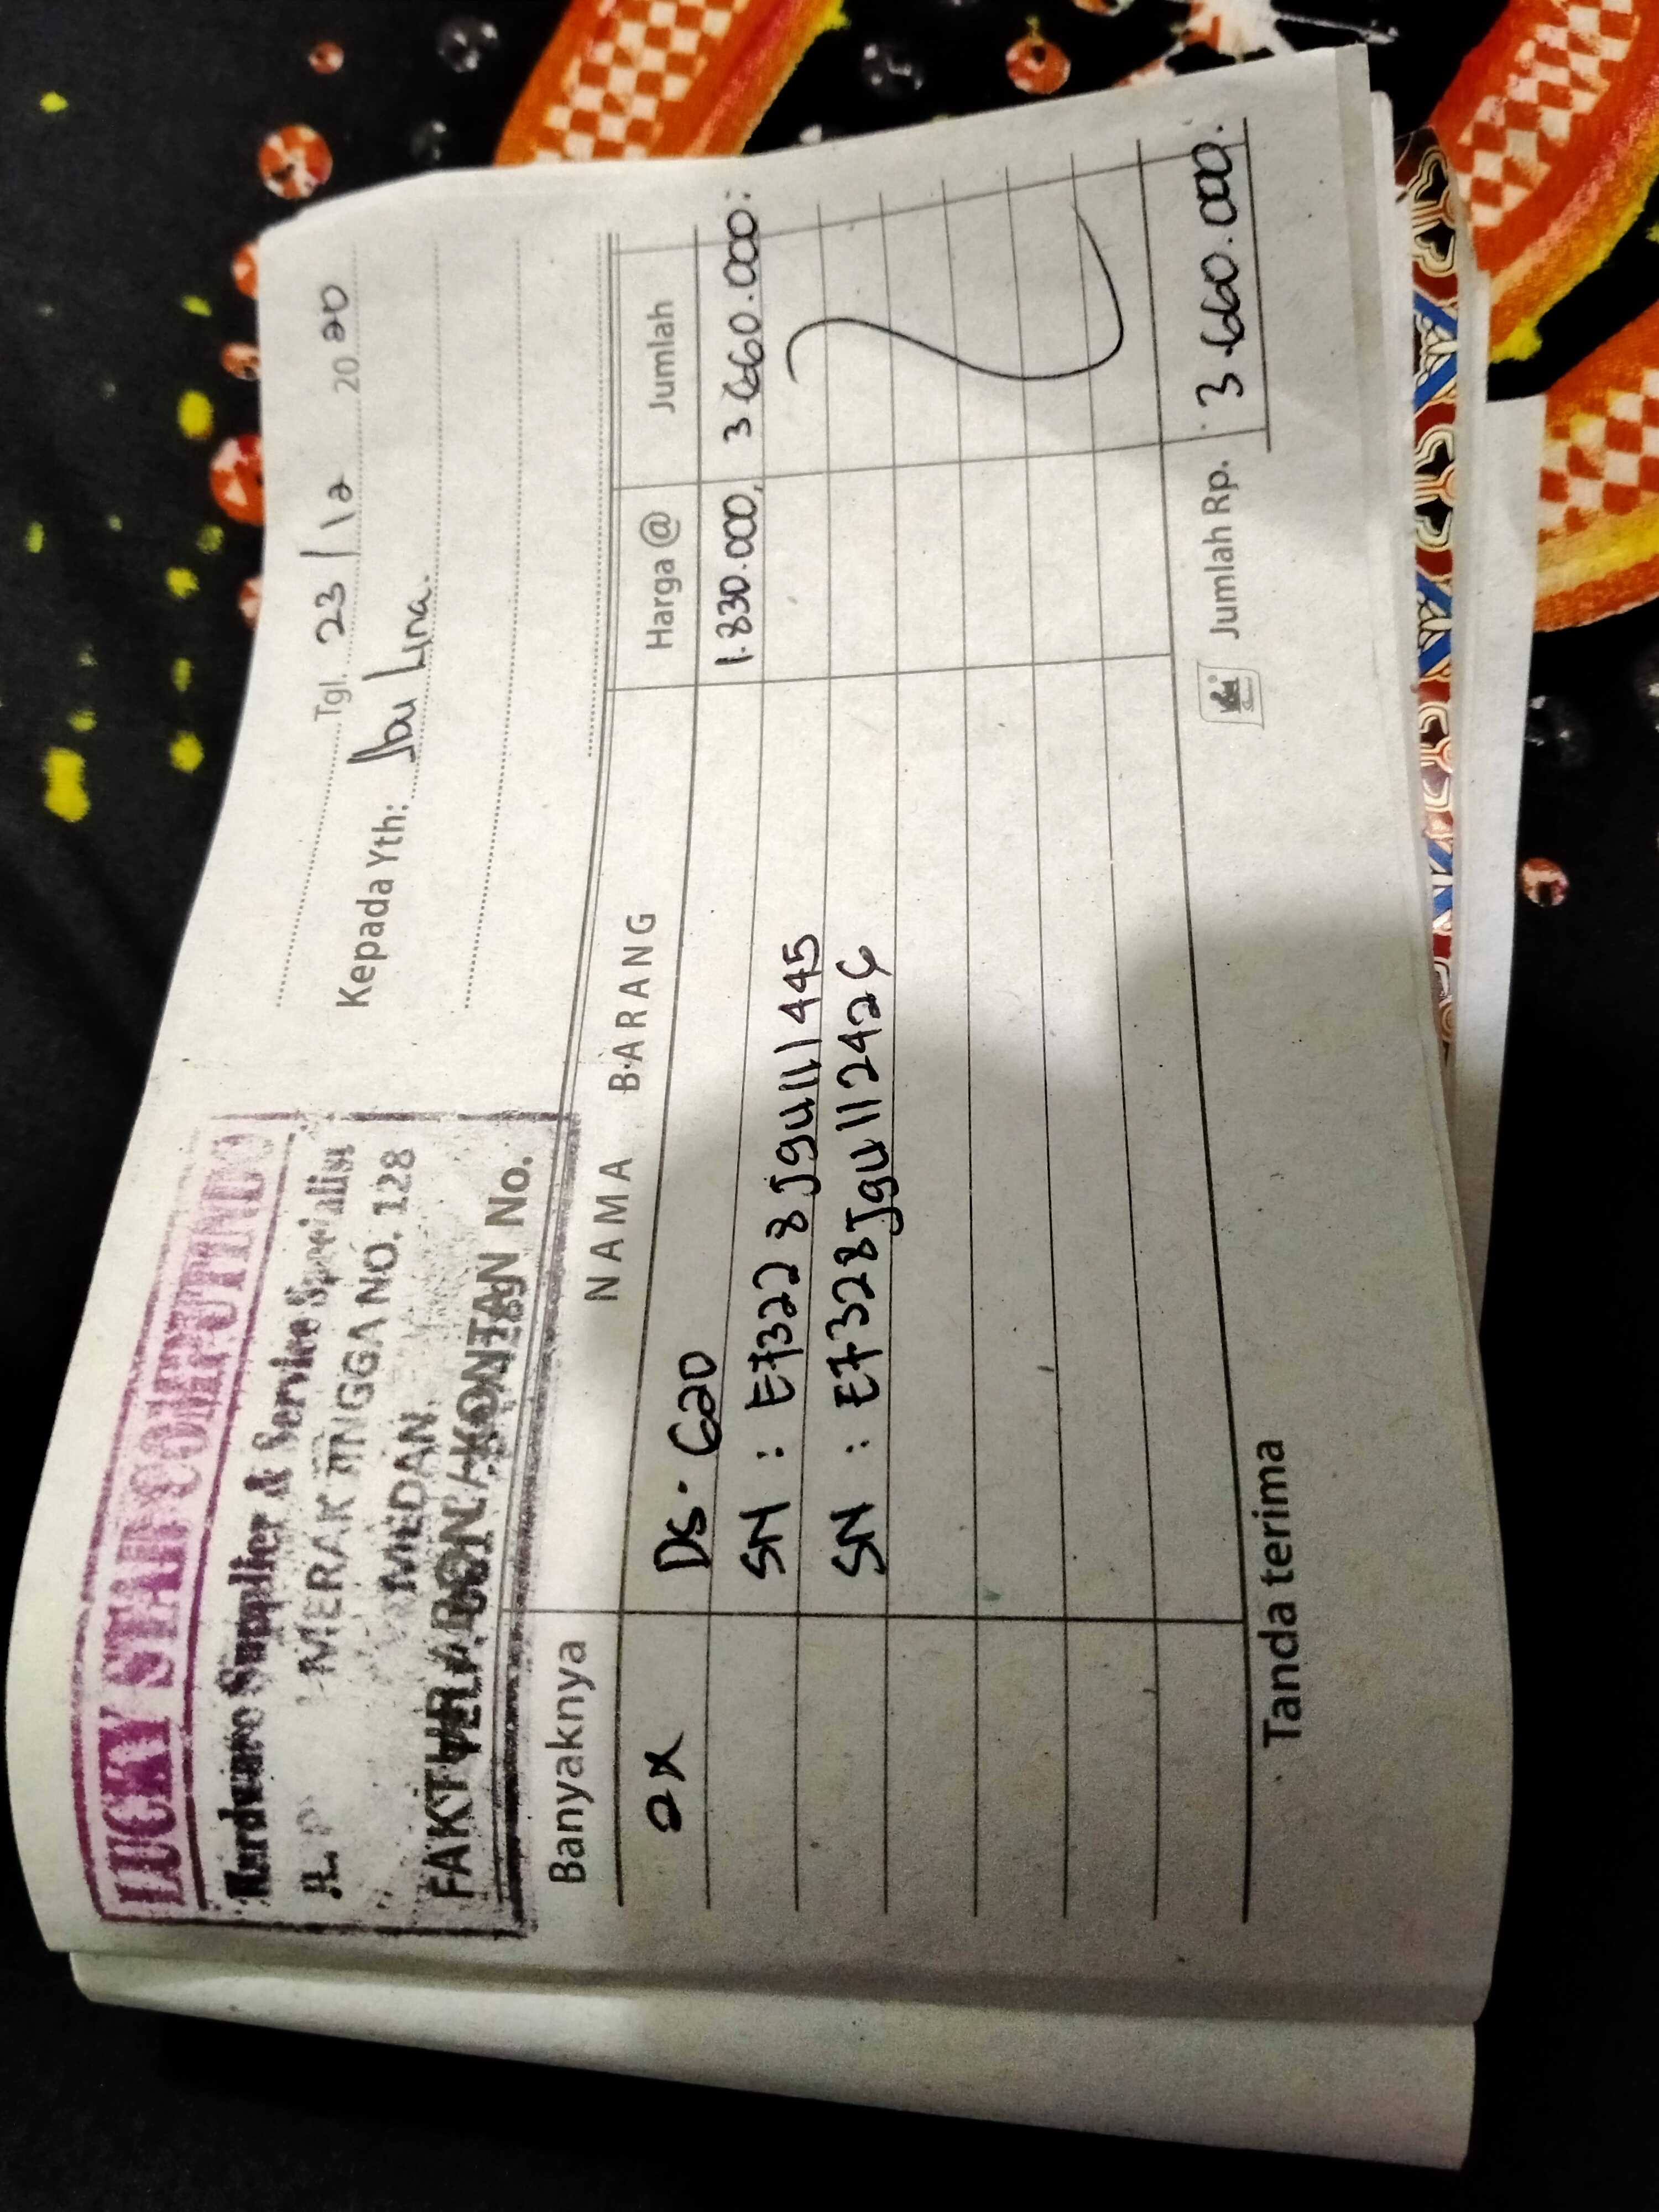 LUCKY STAR COMPUTINDO
Hardware Supplier & Service Specialist
JL. MERAK JINGGA NO. 128
MEDAN.
FAKTUR NO.
Tgl. 23/12 2020
Kepada Yth: Ibu Lina.
Banyaknya NAMA BARANG Harga @ Jumlah
2x Ds. 620 1.830.000, 3.660.000:
SN : E73228Jgull1445
SN : E7328Jgull2426
Jumlah Rp. 3.660.000.
Tanda terima